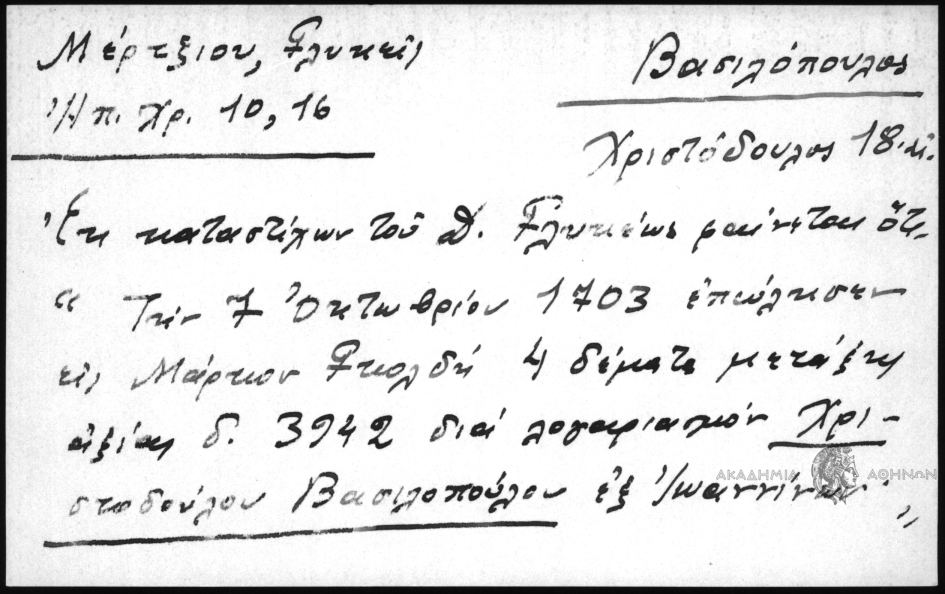 Μέρτζιου, Γλυκεῖς
Ἠπ. Χρ. 10, 16
Βασιλόπουλος
Χριστόδουλος 18. αἰ.
Ἐκ καταστίχων τοῦ Δ. Γλυκέως φαίνεται ὅτι
“ Τὴν 7 Ὀκτωβρίου 1703 ἐπώλησεν
εἰς Μάρκον Γκολδή 4 δέματα μετάξης
ἀξίας δ. 3942 διά λογαριασμόν Χρι-
στοδούλου Βασιλοπούλου ἐξ Ἰωαννίνων. ”
ΑΚΑΔΗΜΙΑ ΑΘΗΝΩΝ